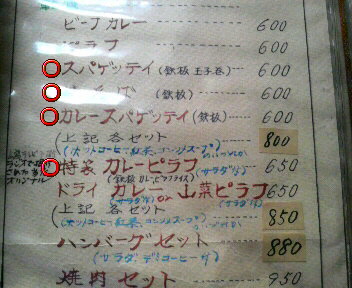 ビーフカレー 600
ピラフ 600
スパゲッテイ(鉄板 玉子巻) 600
(鉄板) 600
カレースパゲッテイ(鉄板) 600
(上記各セット 800
(ホットコーヒー 紅茶 コンソメスープ
特製 カレーピラフ 650
(鉄板 カレーピラフライス) (サラダ付)
ドライカレー OR 山菜ピラフ 650
(サラダ付) (サラダ付)
(上記各セット 850
(ホットコーヒー 紅茶 コンソメスープ
ハンバーグセット 880
(サラダ コーヒー付)
焼肉セット 950
オリジナル